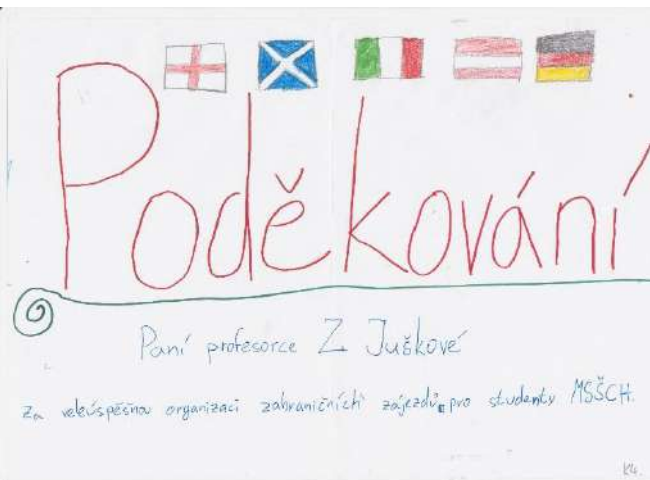 Poděkování
Paní profesorce Z Juškové
Za veleúspěšnou organizaci zahraničních zájezdů pro studenty MSŠCH.
K4.